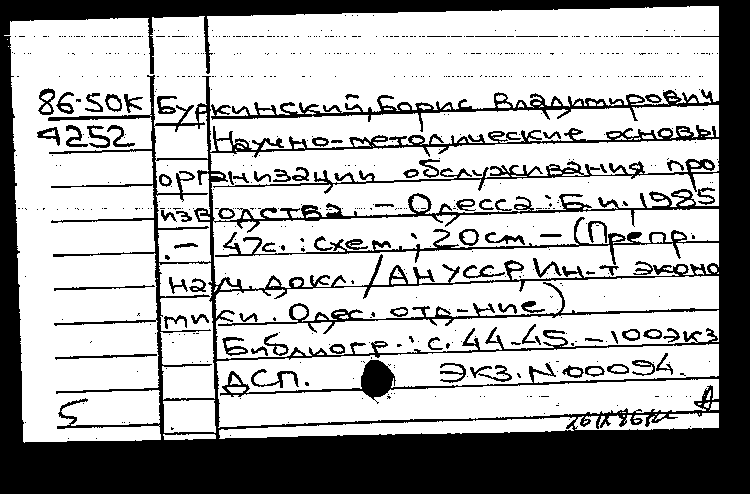 86-50К Буркинский, Борис Владимирович
4252 Научно-методические основы
организации обслуживания про
изводства. - Одесса : Б.и., 1985
. - 47с. : схем. ; 20 см. - (Препр.
науч. докл. / АН УССР, Ин-т эконо
мики. Одес. отд-ние).
Библиогр.: с. 44-45. - 100 экз
ДСП. Экз. N 00094.
5